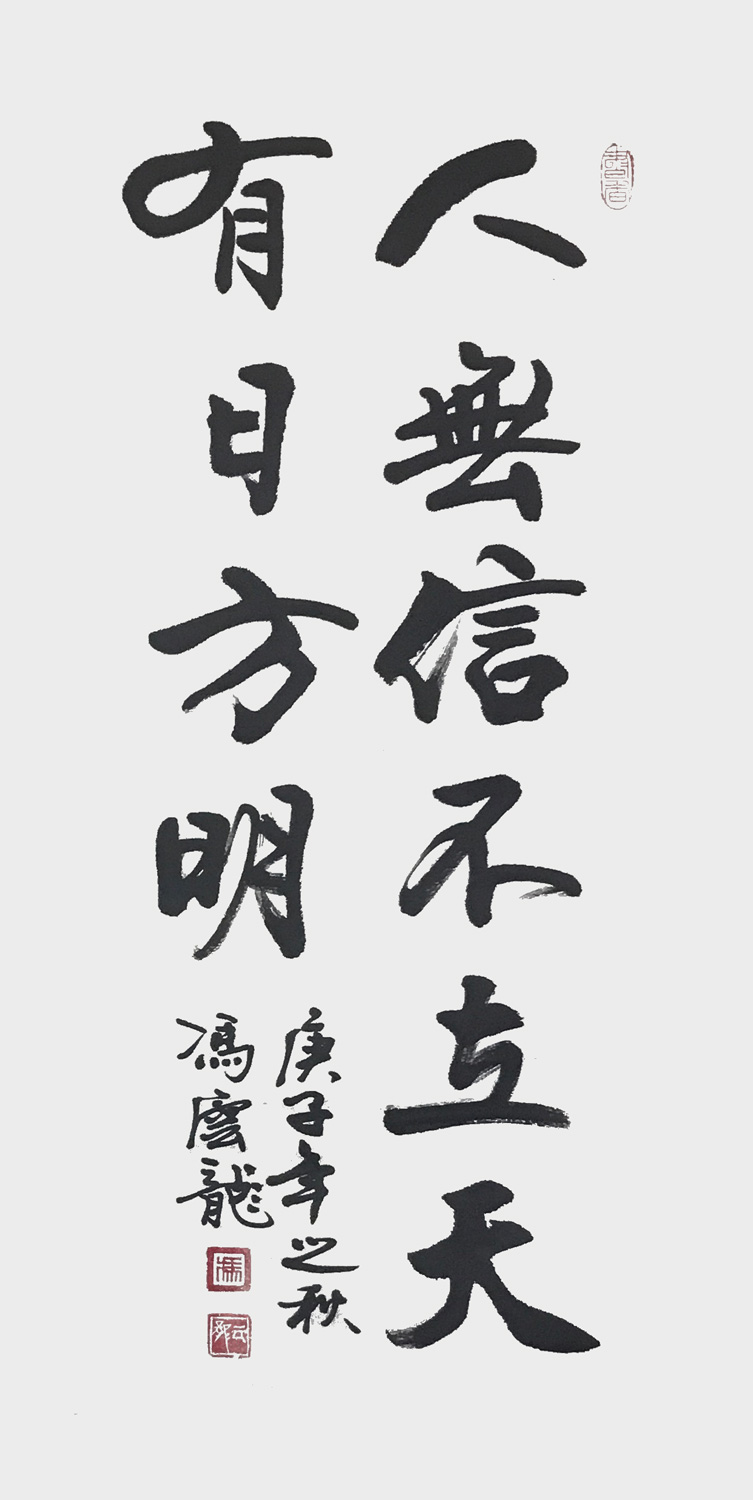 人無信不立天
有日方明
庚子年之秋
馮雲龍